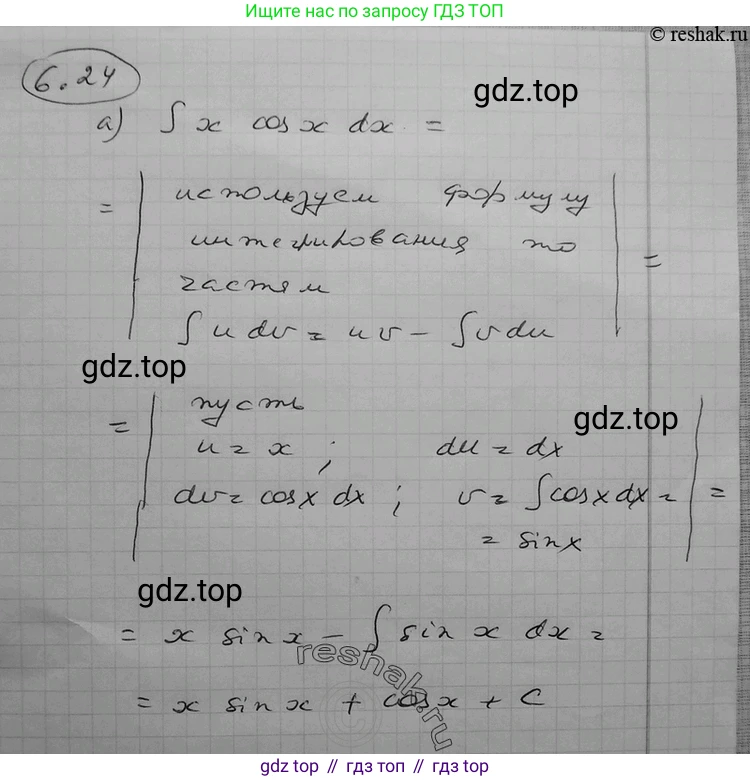 Ищите нас по запросу ГДЗ ТОП
© reshak.ru
6.24
gdz.top
а) ∫ x cos x dx =
= | используем формулу
интегрирования по | =
частям
∫ u dv = uv - ∫ v du
gdz.top
= | пусть
gdz.top
u = x ; du = dx
dv = cos x dx ; v = ∫ cos x dx = | =
= sin x
gdz.top
= x sin x - ∫ sin x dx =
reshak.ru
= x sin x + cos x + C
gdz.top // gdz.top // gdz.top // gdz.top